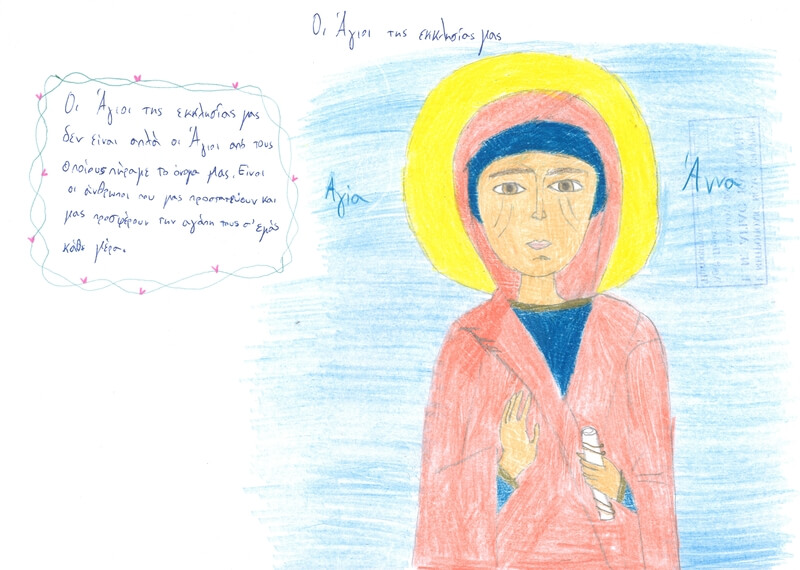 Οι Άγιοι της εκκλησίας μας
Οι Άγιοι της εκκλησίας μας
δεν είναι απλά οι Άγιοι από τους
οποίους πήραμε το όνομα μας. Είναι
οι άνθρωποι που μας προστατεύουν και
μας προσφέρουν την αγάπη τους σ' εμάς
κάθε μέρα.
Αγία Άννα